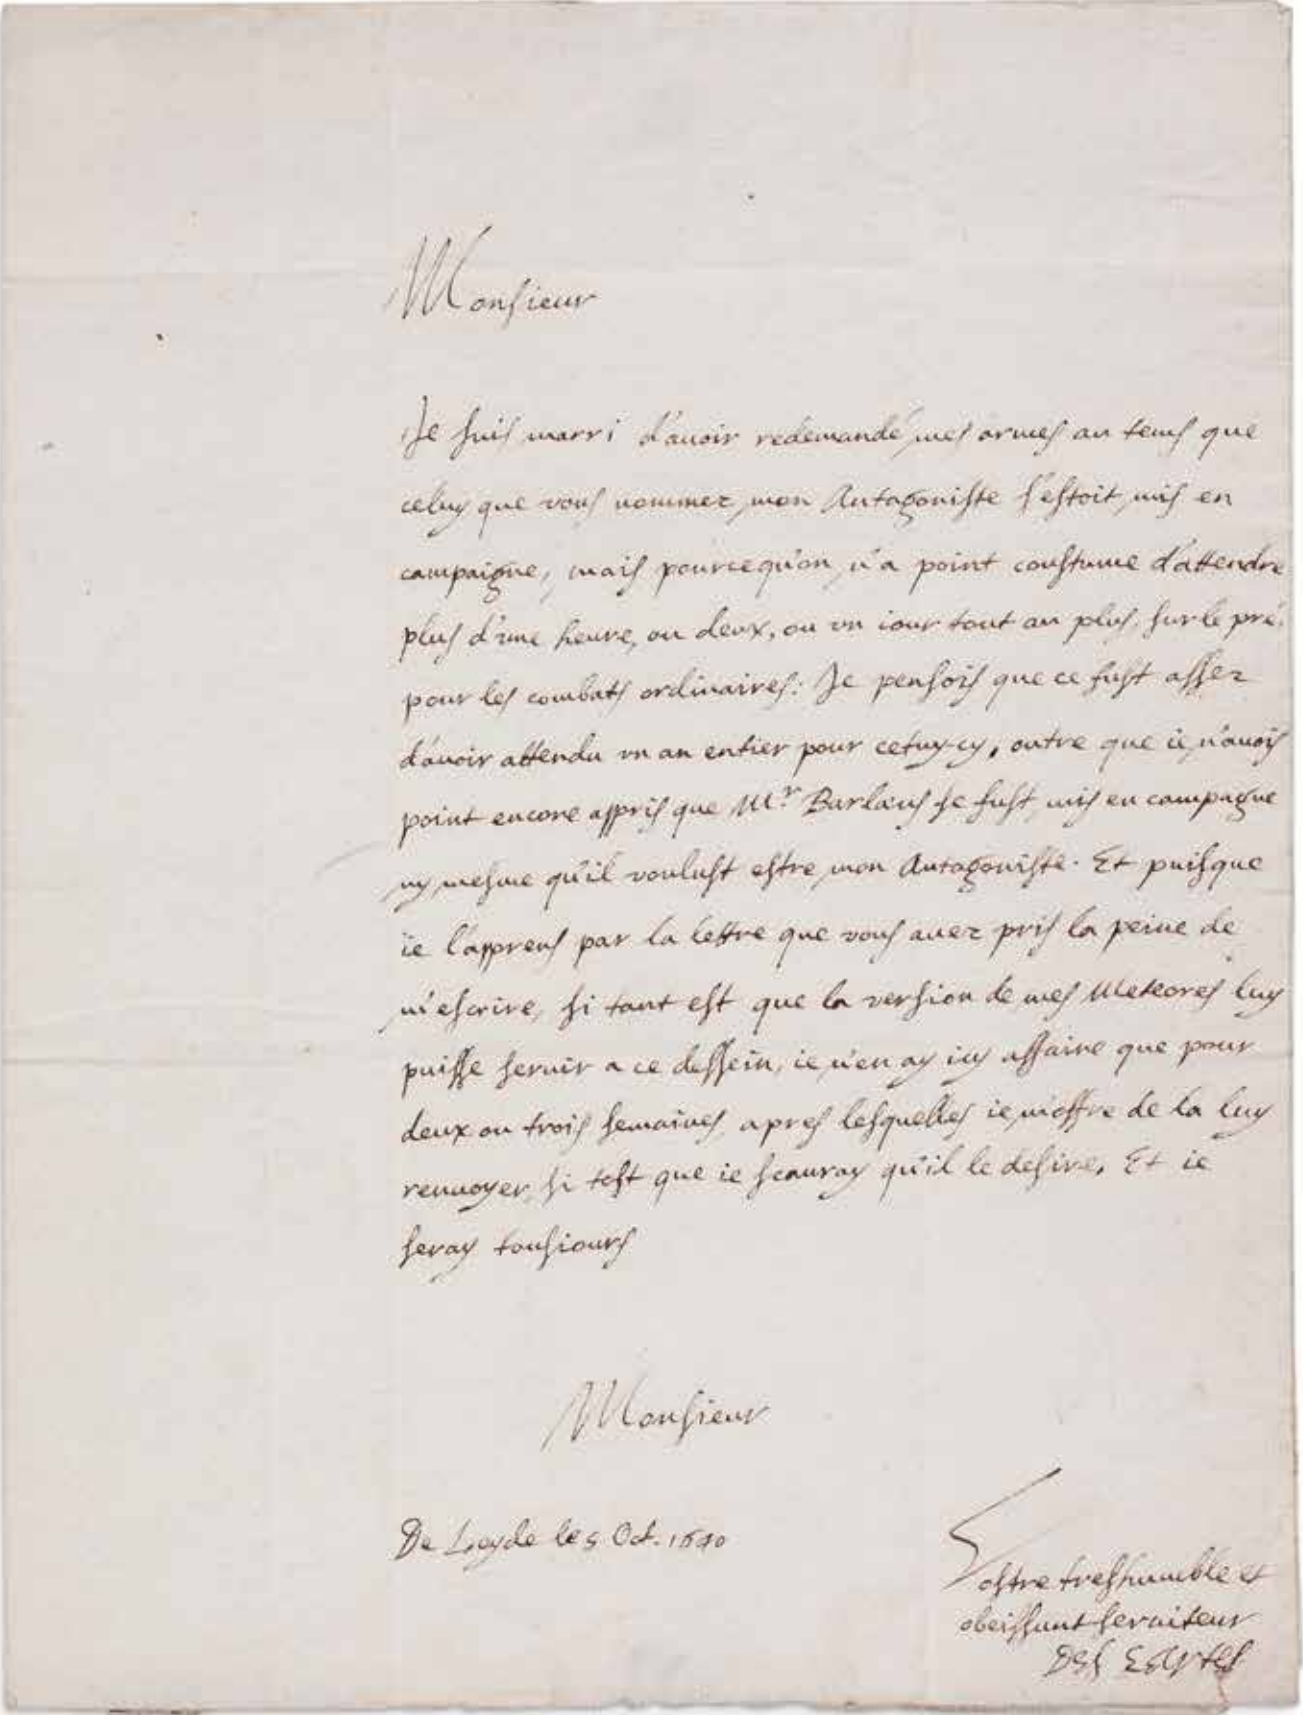 Monsieur
Je suis marri d'auoir redemandé mes armes au tems que
celuy que vous nommez mon Antagoniste s'estoit mis en
campaigne, mais pourcequ'on n'a point coustume d'attendre
plus d'vne heure, ou deux, ou vn iour tout au plus, sur le pré,
pour les combats ordinaires: Je pensois que ce fust assez
d'auoir attendu vn an entier pour cetuy-cy, outre que ie n'auois
point encore appris que Mr. Barlæus se fust mis en campagne
ny mesme qu'il voulust estre mon Antagoniste. Et puisque
ie l'apprens par la lettre que vous auez pris la peine de
m'escrire, si tant est que la version de mes Meteores luy
puisse seruir a ce dessein, ie n'en ay icy affaire que pour
deux ou trois semaines, apres lesquelles ie m'offre de la luy
renuoyer si tost que ie scauray qu'il le desire. Et ie
seray tousiours
Monsieur
De Leyde le 5 Oct. 1640
Vostre treshumble et
obeissant seruiteur
Des Cartes